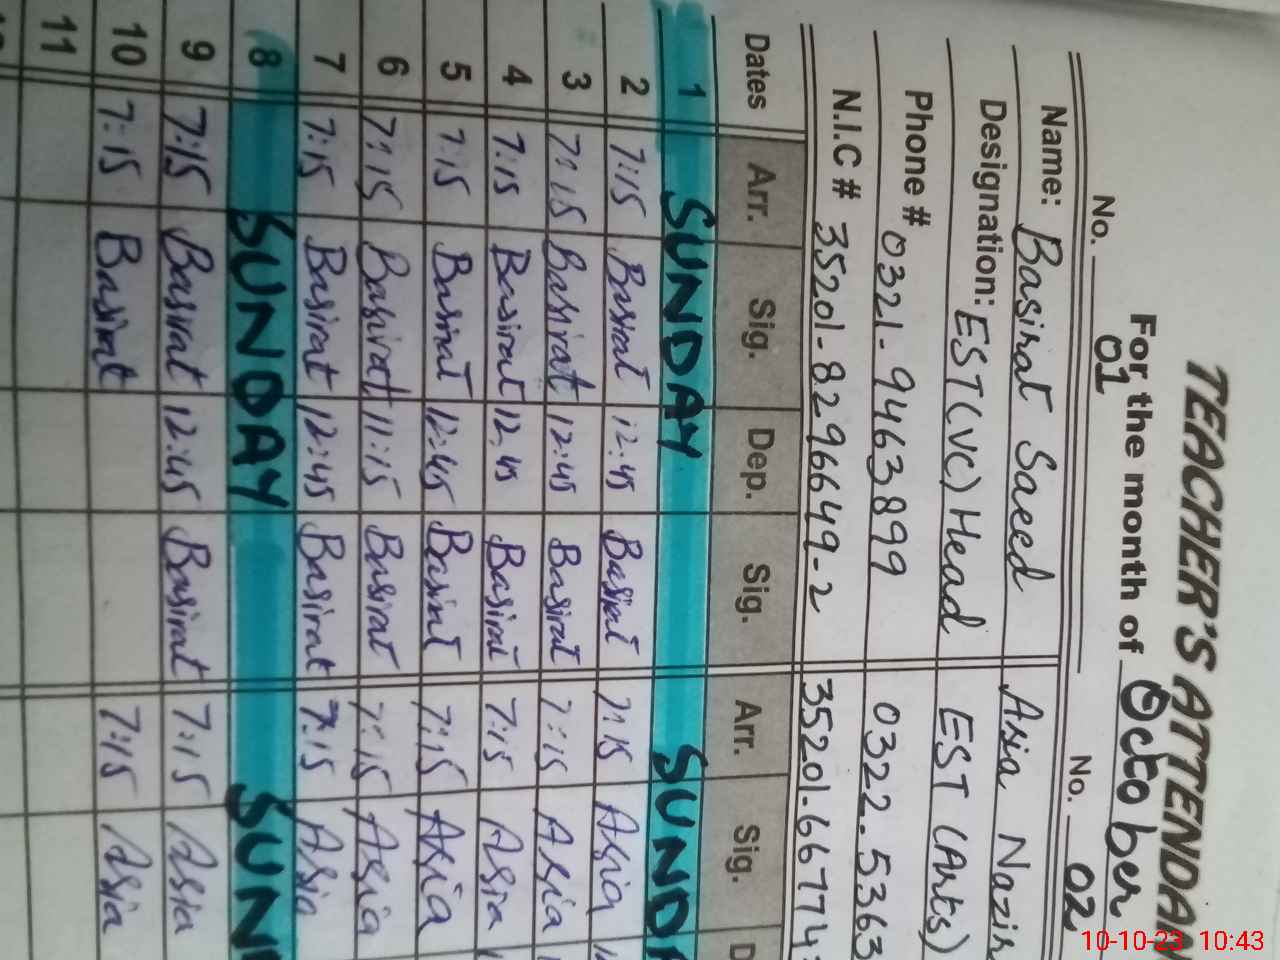 TEACHER'S ATTENDAN
For the month of October
No. 01 No. 02
Name: Basirat Saeed Asia Nazir
Designation: EST(VC) Head EST (Arts)
Phone # 0321-9463899 0322-5363
N.I.C # 35201-8296649-2 35201-66774
Dates Arr. Sig. Dep. Sig. Arr. Sig. D
1 SUNDAY SUNDA
2 7:15 Basirat 12:45 Basirat 7:15 Asia 1
3 7:15 Basirat 12:45 Basirat 7:15 Asia
4 7:15 Basirat 12:45 Basirat 7:15 Asia 1
5 7:15 Basirat 12:45 Basirat 7:15 Asia
6 7:15 Basirat 11:15 Basirat 7:15 Asia
7 7:15 Basirat 12:45 Basirat 7:15 Asia
8 SUNDAY SUN
9 7:15 Basirat 12:45 Basirat 7:15 Asia
10 7:15 Basirat 7:15 Asia
11
10-10-23 10:43